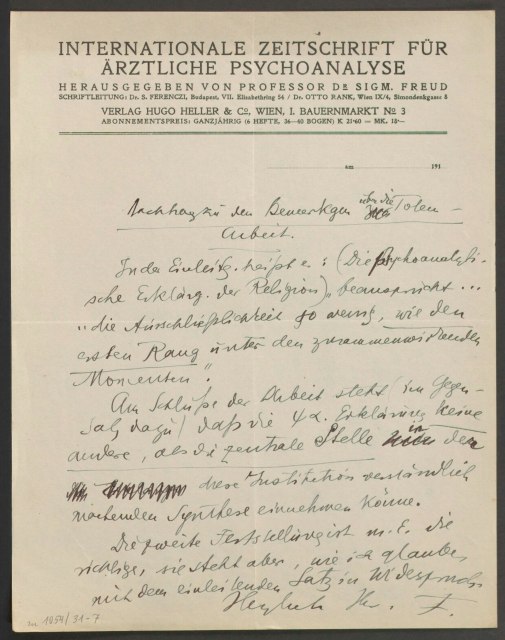 INTERNATIONALE ZEITSCHRIFT FÜR
ÄRZTLICHE PSYCHOANALYSE
HERAUSGEGEBEN VON PROFESSOR DR SIGM. FREUD
SCHRIFTLEITUNG: Dr. S. FERENCZI, Budapest, VII. Elisabethring 54 / Dr. OTTO RANK, Wien IX/4, Simondenkgasse 8
VERLAG HUGO HELLER & Co, WIEN, I. BAUERNMARKT No 3
ABONNEMENTSPREIS: GANZJÄHRIG (6 HEFTE, 36—40 BOGEN) K 21·60 = MK. 18·—
am 191
Nachtrag zu den Bemerkgen über die Totem-
Arbeit.
In der Einleitg. heißt es: (Die Psychoanalyti-
sche Erklärg. der Religion) „beansprucht ...
„die Ausschließlichkeit so wenig, wie den
ersten Rang unter den zusammenwirkenden
Momenten".
Am Schluße der Arbeit steht (im Gegen-
satz dazu) daß die ψα. Erklärung keine
andere, als die zentrale Stelle in der
diese Institution verständlich
machenden Synthese einnehmen könne.
Die zweite Feststellung ist m. E. die
richtige, sie steht aber, wie ich glaube,
mit dem einleitenden Satz in Widerspruch
Herzlich Ihr F.
m 1954/31-7